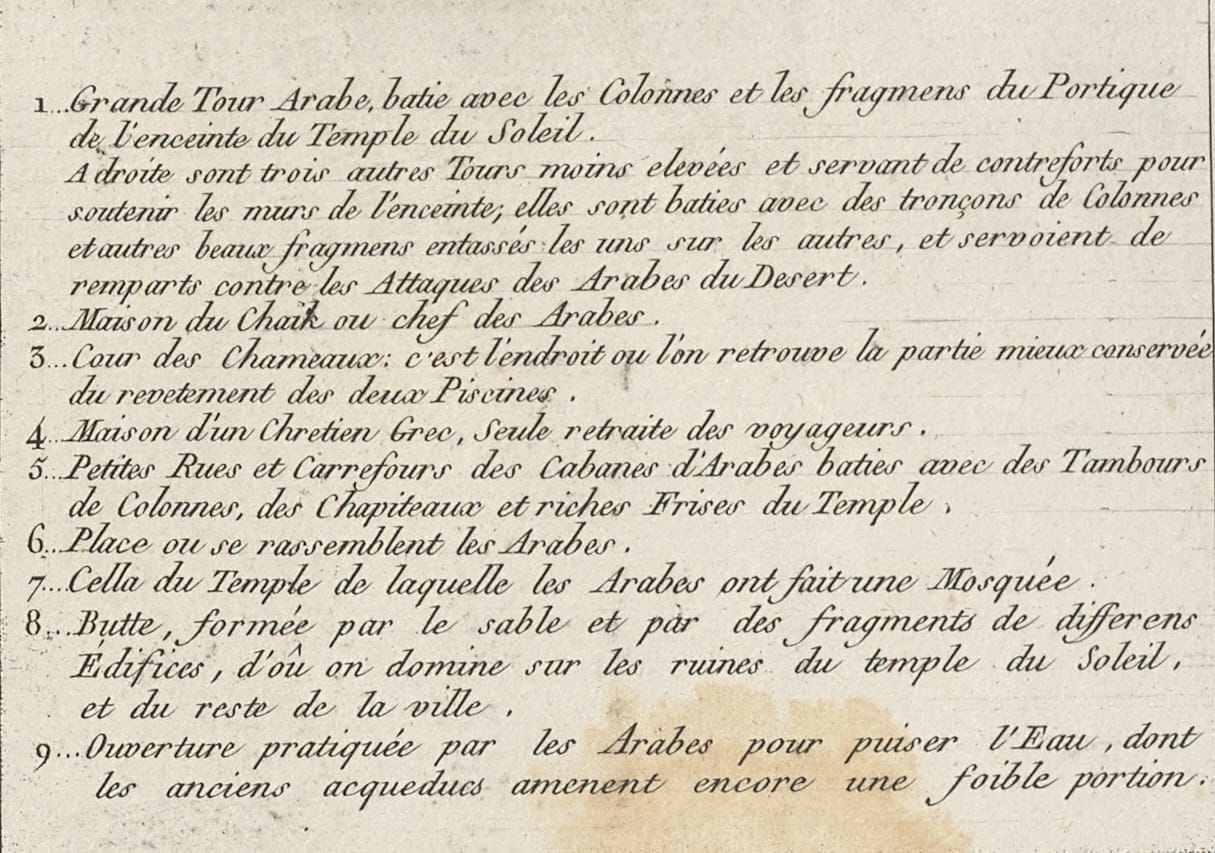 1...Grande Tour Arabe, batie avec les Colonnes et les fragmens du Portique
de l'enceinte du Temple du Soleil.
A droite sont trois autres Tours moins elevées et servant de contreforts pour
soutenir les murs de l'enceinte; elles sont baties avec des tronçons de Colonnes
et autres beaux fragmens entassés les uns sur les autres, et servoient de
remparts contre les Attaques des Arabes du Desert.
2...Maison du Chaik ou chef des Arabes.
3...Cour des Chameaux: c'est l'endroit ou l'on retrouve la partie mieux conservée
du revetement des deux Piscines.
4...Maison d'un Chretien Grec, Seule retraite des voyageurs.
5...Petites Rues et Carrefours des Cabanes d'Arabes baties avec des Tambours
de Colonnes, des Chapiteaux et riches Frises du Temple.
6...Place ou se rassemblent les Arabes.
7...Cella du Temple de laquelle les Arabes ont fait une Mosquée.
8...Butte, formée par le sable et par des fragments de differens
Édifices, d'oû on domine sur les ruines du temple du Soleil,
et du reste de la ville.
9...Ouverture pratiquée par les Arabes pour puiser l'Eau, dont
les anciens acqueducs amenent encore une foible portion.